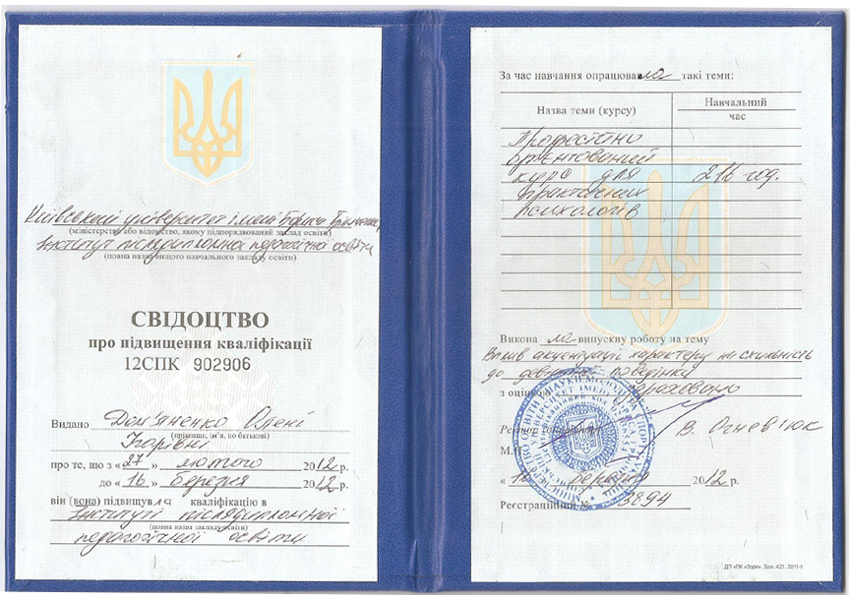 Київський університет імені Бориса Грінченка,
(міністерство або відомство, якому підпорядкований заклад освіти)
Інститут післядипломної педагогічної освіти
(повна назва вищого навчального закладу освіти)
СВІДОЦТВО
про підвищення кваліфікації
12СПК 902906
Видано Дем'яненко Олені
(прізвище, ім'я, по батькові)
Ігорівні
про те, що з «27» лютого 2012 р.
до «16» березня 2012 р.
він (вона) підвищувала кваліфікацію в
Інституті післядипломної
(повна назва закладу освіти)
педагогічної освіти
За час навчання опрацювала такі теми:
Назва теми (курсу)
Навчальний
час
Професійно
орієнтований
курс для 216 год.
практичних
психологів
Виконала випускну роботу на тему
Вплив акцентуації характеру на схильність
до девіантної поведінки
з оцінкою зараховано
Ректор
В. Огнев'юк
М.П.
«16» березня 2012 р.
Реєстраційний № 3894
ДП «ПК «Зоря». Зам. 421. 2011-ІІ